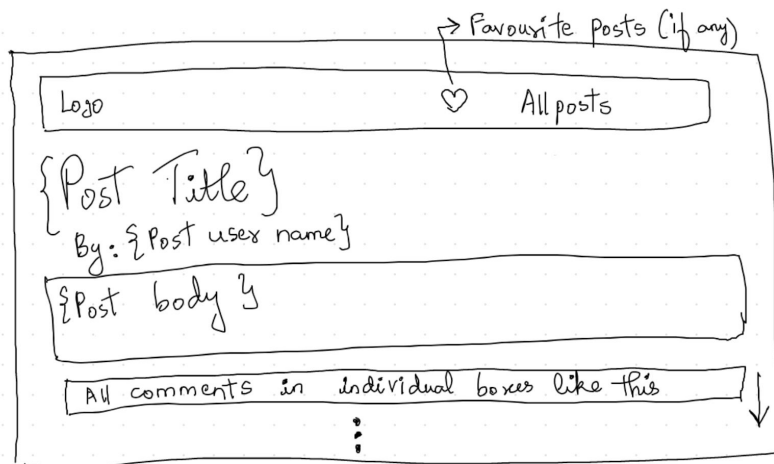 Favourite posts (if any)
Logo All posts
{Post Title}
By: {Post user name}
{Post body}
All comments in individual boxes like this